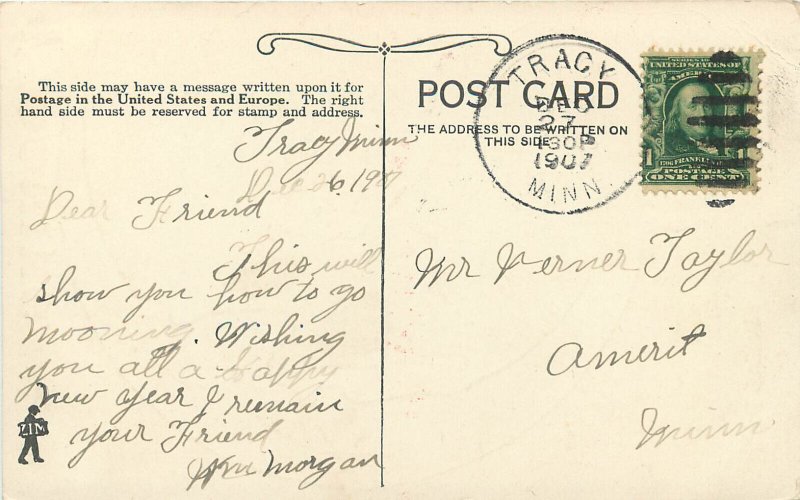 This side may have a message written upon it for
Postage in the United States and Europe. The right
hand side must be reserved for stamp and address.
POST CARD
THE ADDRESS TO BE WRITTEN ON
THIS SIDE
TRACY
DEC
27
130P
1907
MINN.
SERIES 1902
UNITED STATES OF
AMERICA
1 FRANKLIN 1
POSTAGE
ONE CENT
Tracy Minn
Dec 26, 1907
Dear Friend
This will
show you how to go
mooning. Wishing
you all a Happy
new year I remain
your Friend
Wm Morgan
ZIM
Mr Verner Taylor
Amerit
Minn